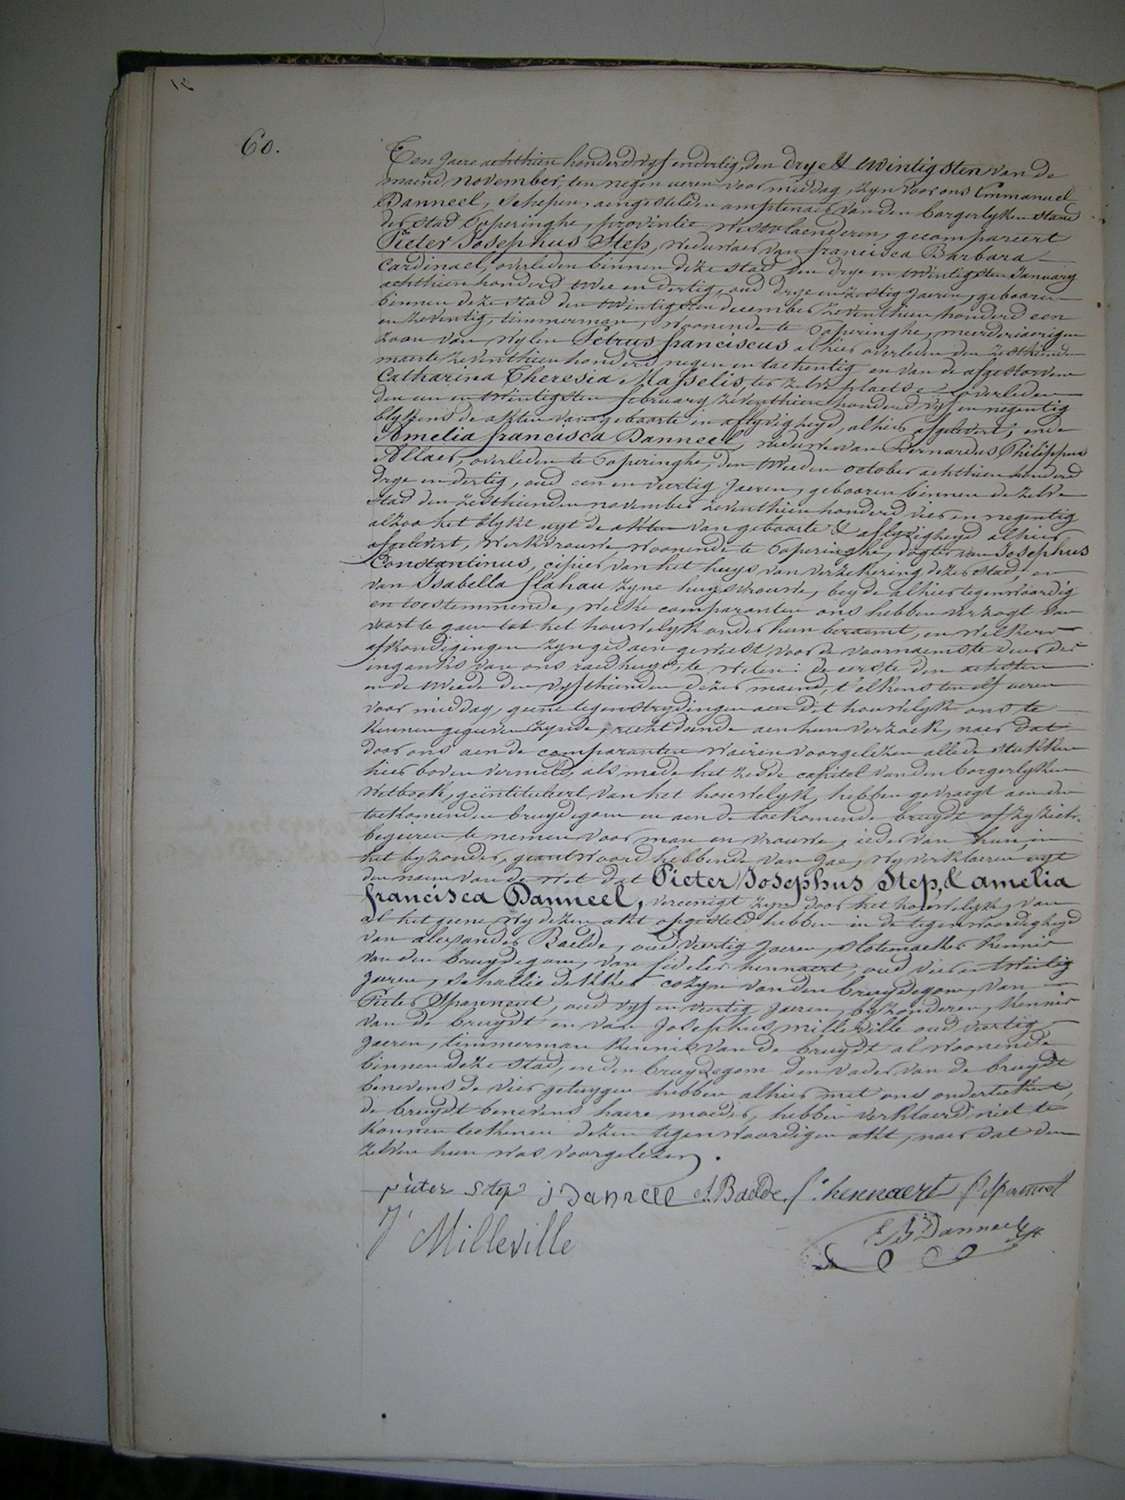 60.
Ten Jaere achthien honderd vyf en dertig, den drye & twintigsten van de
maend november, ten negen ueren voor middag, zyn voor ons Emmanuel
Danneel, Schepen, aengestelden amptenaer van den borgerlyken stand
der stad Poperinghe, provintie Westvlaenderen, gecompareert
Pieter Josephus Step, weduwaer van francisca Barbara
Cardinael, overleden binnen deze stad den drye en twintigsten January
achthien honderd twee en dertig, oud drye en zestig Jaeren, gebooren
binnen deze stad den twintigsten december zeventhien honderd een
en zeventig, timmerman, woonende te Poperinghe, meerderjaerigen
zoon van wylen Petrus franciscus alhier overleden den zesthienden
maerte zeventhien honderd negen en tachentig en van de afgestorven
Catharina Theresia Masselis, ter zelve plaetse overleden
den een en twintigsten february zeventhien honderd vyf en negentig
blykens de akten van geboorte en aflyvigheyd, alhier afgelevert; ende
Amelia francisca Danneel, weduwe van Bernardus Philippus
Allaer, overleden te Poperinghe, den tweeden october achthien honderd
drye en dertig, oud een en veertig Jaeren, gebooren binnen de zelve
stad den zesthienden november zeventhien honderd vier en negentig
alzoo het blykt uyt de akten van geboorte & aflyvigheyd alhier
afgelevert, werkvrouwe woonende te Poperinghe, dogter van Josephus
Constantinus, cipier van het huys van verzekering dezer stad, en
van Isabella flahau zyne huysvrouwe, beyde alhier tegenwoordig
en toestemmende, welke comparanten ons hebben verzogt van
voort te gaen tot het houwelyk onder hun beraemt, en welkers
afkondigingen zyn gedaen geweest voor de voornaemste deur der
ingank van ons raedhuys, te weten: de eerste den achtsten
en de tweede den vyfthienden dezer maend, t'elkens ten elf ueren
voor middag, geene tegenstrydingen aen dit houwelyk ons te
kennen gegeven zynde, recht doende aen hun verzoek, naer dat
door ons aen de comparanten waeren voorgelezen alle de stukken
hier boven vermeld, als mede het zesde capitel van den borgerlyken
wetboek, geintituleert van het houwelyk, hebben gevraegt aen den
toekomenden bruydegom en aen de toekomende bruydt of zy zich
begeeren te nemen voor man en vrouwe; ieder van hun, in
het byzonder, geantwoord hebbende van Jae, wy verklaeren uyt
den naem van de wet dat Pieter Josephus Step, & amelia
francisca Danneel, vereenigt zyn door het houwelyk, van
al het geene wy dezen akt opgesteld hebben in de tegenwoordigheyd
van alexander Baelde, oud veertig Jaeren, slotemaeker kennis
van den bruydegom, van fidelis hennaert, oud vier en twintig
Jaeren, schaliedekker cozyn van den bruydegom, van
Pieter Spanneut, oud vyf en veertig Jaeren, byzonderen, kennis
van de bruydt en van Josephus milleville oud veertig
Jaeren, timmerman kennis van de bruydt al woonende
binnen deze stad, en den bruydegom den vader van de bruydt
benevens de vier getuygen hebben alhier met ons onderteekent,
de bruydt benevens haere moeder, hebben verklaerd niet te
konnen teekenen dezen tegenwoordigen akt, naer dat den
zelven hun was voorgelezen.
pieter step J Danneel A Baelde. f. hennaert P Spanneut
J Milleville E Danneel